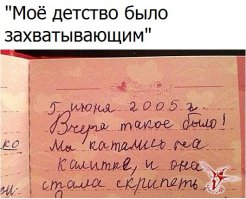 "Моё детство было
захватывающим"
5 июня 2005 г.
Вчера такое было!
Мы катались на
ко калитке, и она
стала скрипеть